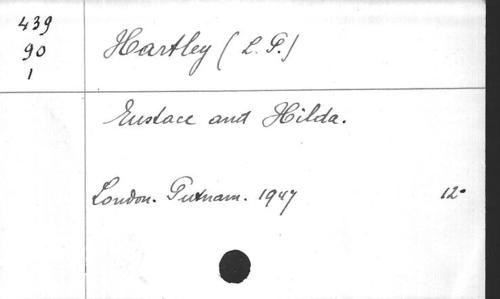 439
90
1
Hartley (L. P.)
Eustace and Hilda.
London. Putnam. 1947 12°